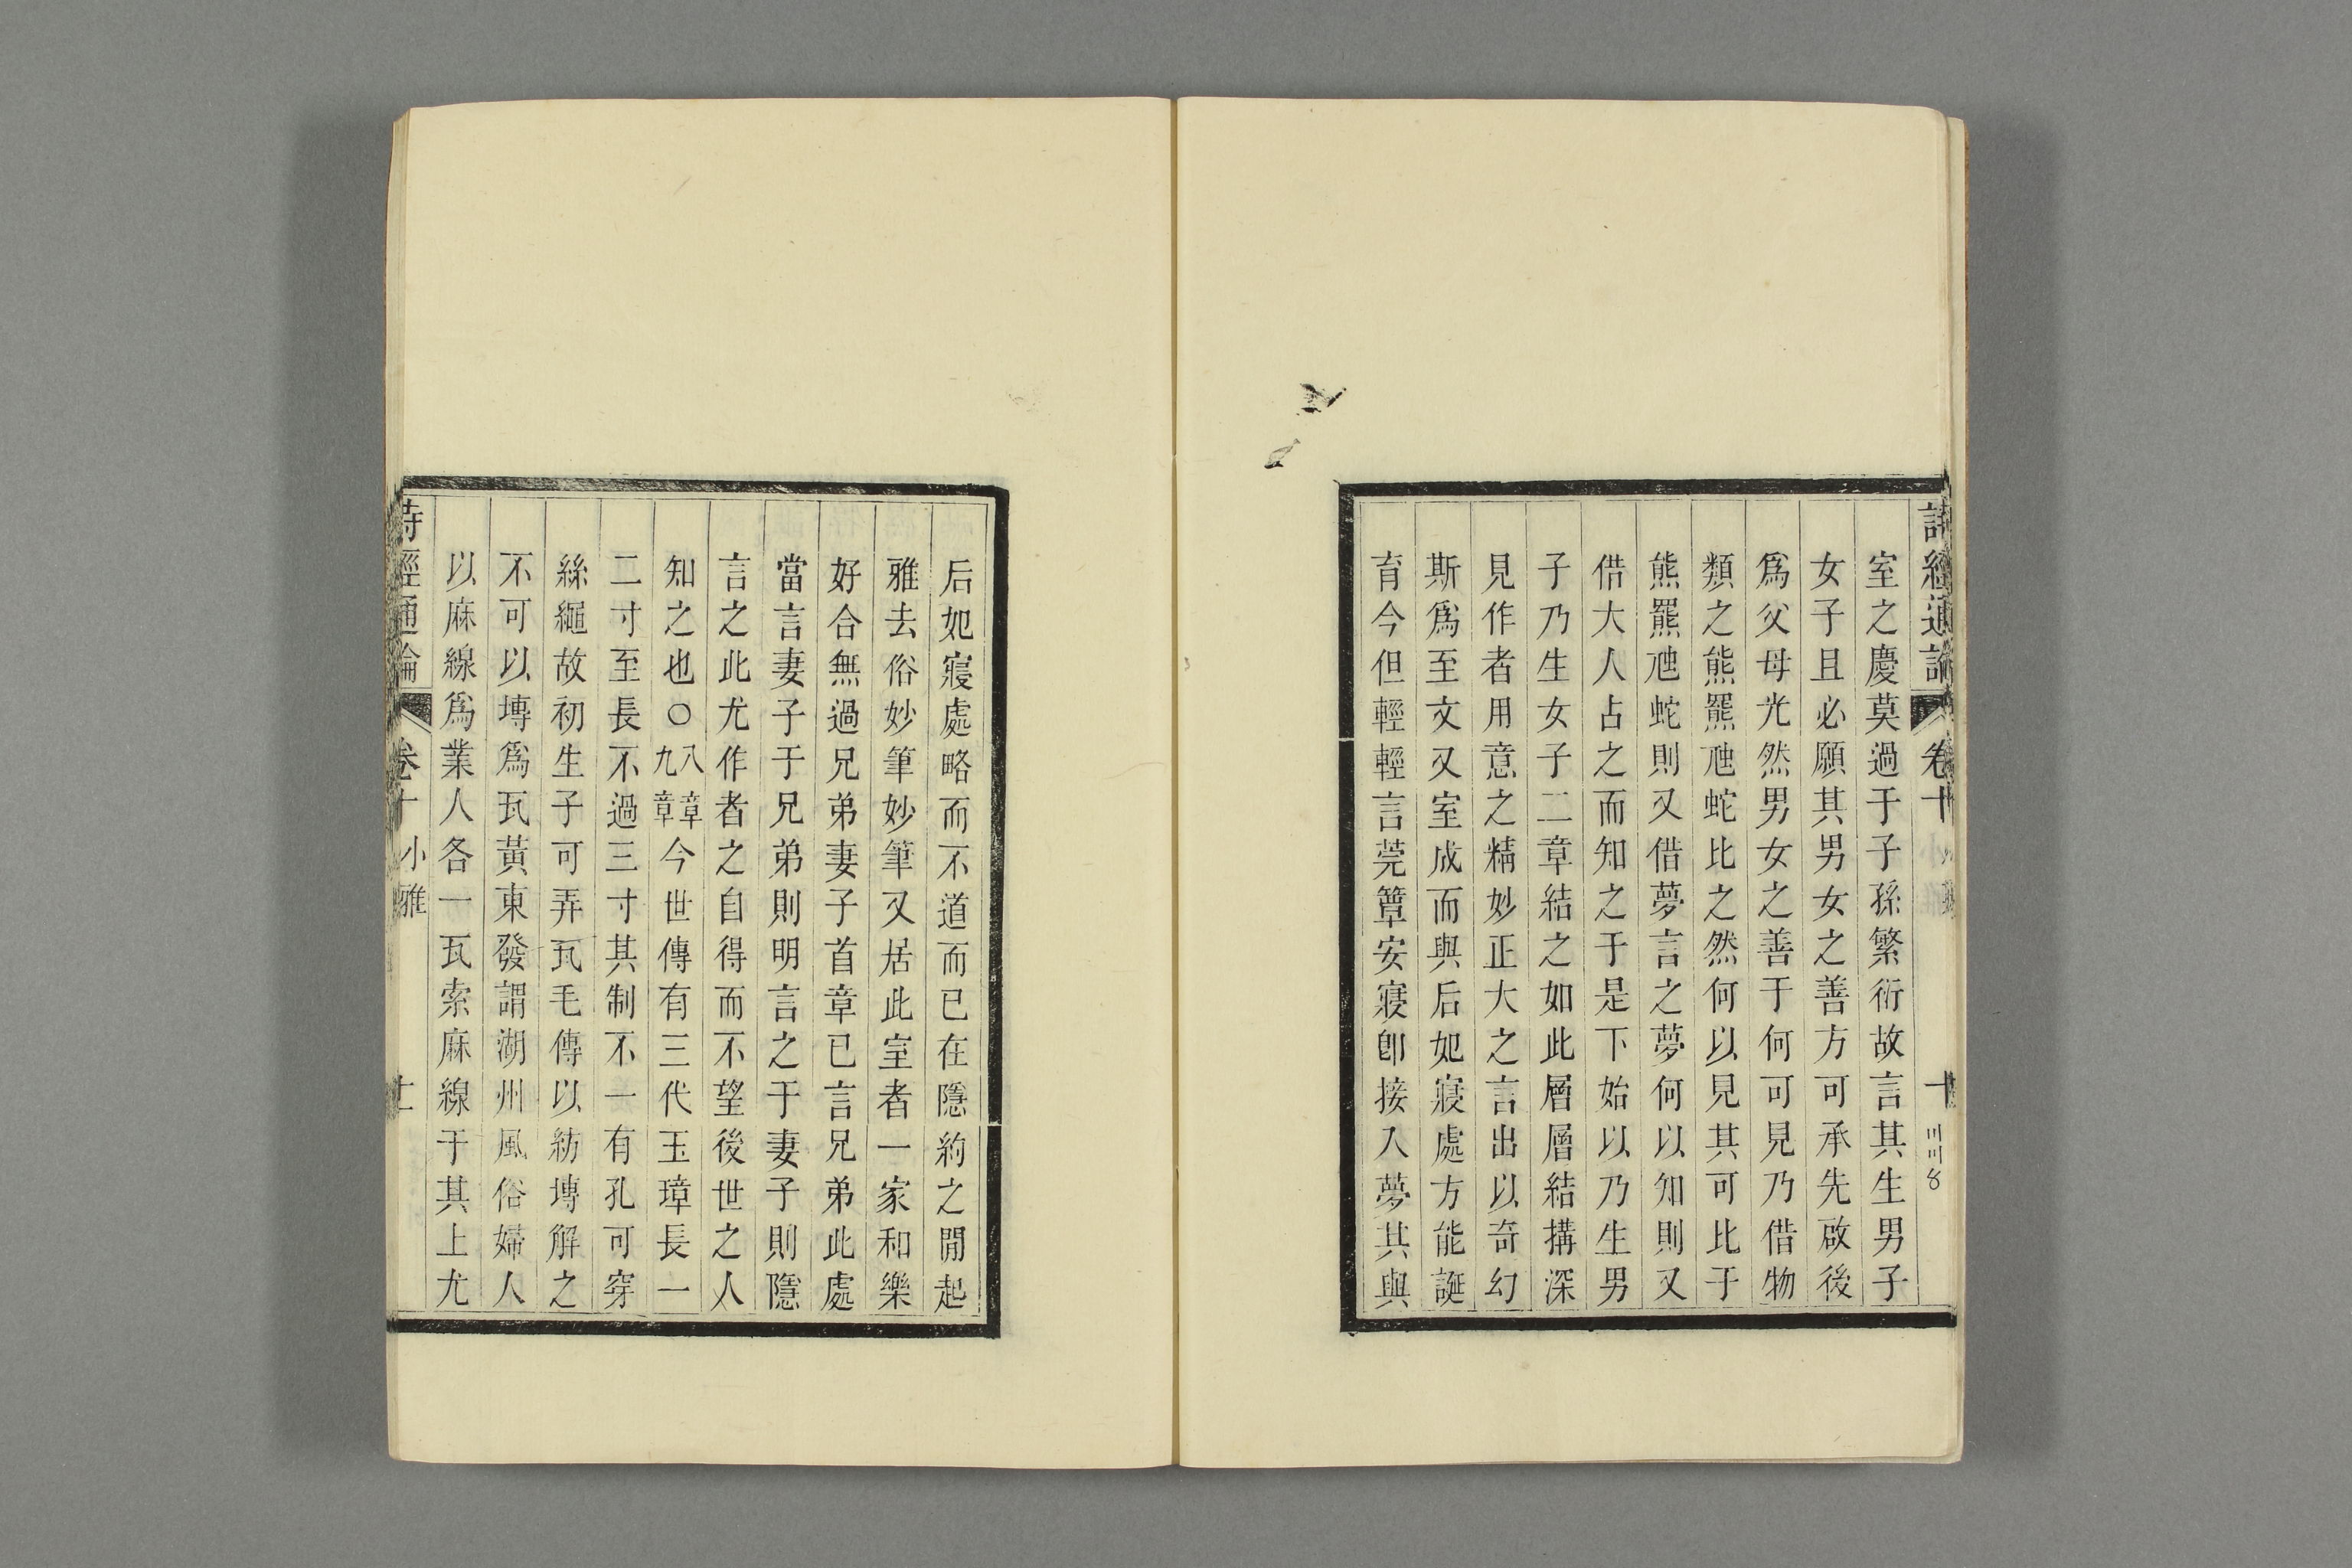 詩經通論 卷十 小雅 十 三三8
室之慶莫過于子孫繁衍故言其生男子
女子且必願其男女之善方可承先啟後
爲父母光然男女之善于何可見乃借物
類之熊羆虺蛇比之然何以見其可比于
熊羆虺蛇則又借夢言之夢何以知則又
借大人占之而知之于是下始以乃生男
子乃生女子二章結之如此層層結搆深
見作者用意之精妙正大之言出以奇幻
斯爲至文又室成而與后妃寢處方能誕
育今但輕輕言莞簟安寢卽接入夢其與
后妃寢處略而不道而已在隱約之閒起
雅去俗妙筆妙筆又居此室者一家和樂
好合無過兄弟妻子首章已言兄弟此處
當言妻子于兄弟則明言之于妻子則隱
言之此尤作者之自得而不望後世之人
知之也〇八章九章今世傳有三代玉璋長一
二寸至長不過三寸其制不一有孔可穿
絲繩故初生子可弄瓦毛傳以紡塼解之
不可以塼爲瓦黃東發謂湖州風俗婦人
以麻線爲業人各一瓦索麻線于其上尤
詩經通論 卷十 小雅 十一